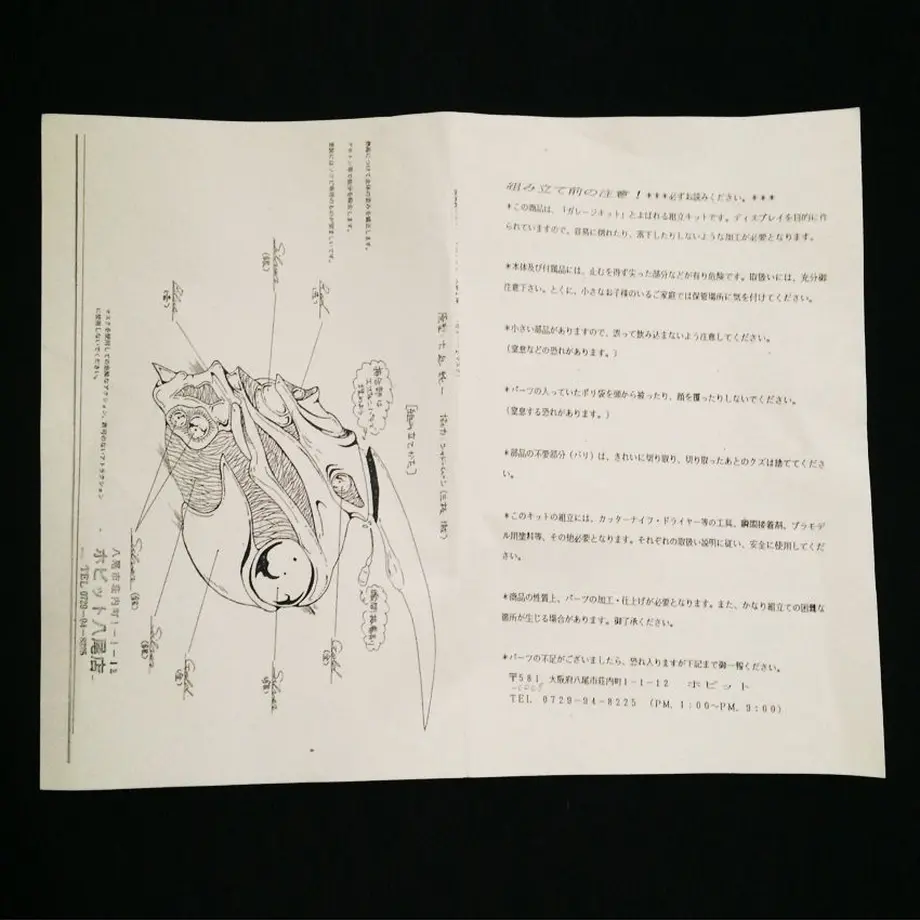 組み立て前の注意！＊＊＊必ずお読みください。＊＊＊
＊この商品は、「ガレージキット」とよばれる組立キットです。ディスプレイを目的に作
られていますので、容易に倒れたり、落下したりしないような加工が必要となります。
＊本体及び付属品には、止むを得ず尖った部分などが有り危険です。取扱いには、充分御
注意下さい。とくに、小さなお子様のいるご家庭では保管場所に気を付けてください。
＊小さい部品がありますので、誤って飲み込まないよう注意してください。
（窒息などの恐れがあります。）
＊パーツの入っていたポリ袋を頭から被ったり、顔を覆ったりしないでください。
（窒息する恐れがあります。）
＊部品の不要部分（バリ）は、きれいに切り取り、切り取ったあとのクズは捨ててくださ
い。
＊このキットの組立には、カッターナイフ・ドライヤー等の工具、瞬間接着剤、プラモデ
ル用塗料等、その他必要となります。それぞれの取扱い説明に従い、安全に使用してくだ
さい。
＊商品の性質上、パーツの加工・仕上げが必要となります。また、かなり組立ての困難な
箇所が生じる場合があります。御了承ください。
＊パーツの不足がございましたら、恐れ入りますが下記まで御一報ください。
〒581 大阪府八尾市荘内町1-1-12 ホビット
TEL 0729-94-8225 (PM.1:00〜PM.9:00)
[組み立てかた]
Silver
(銀)
Red
(赤)
Blue
(青)
Silver
(銀)
Silver
(銀)
Gold
(金)
Silver
(銀)
Gold
(金)
マスクを使用しての危険なアクション、許可のないアトラクション
に使用しないでください。
八尾市荘内町1-1-12
ホビット八尾店
TEL 0729-94-8225